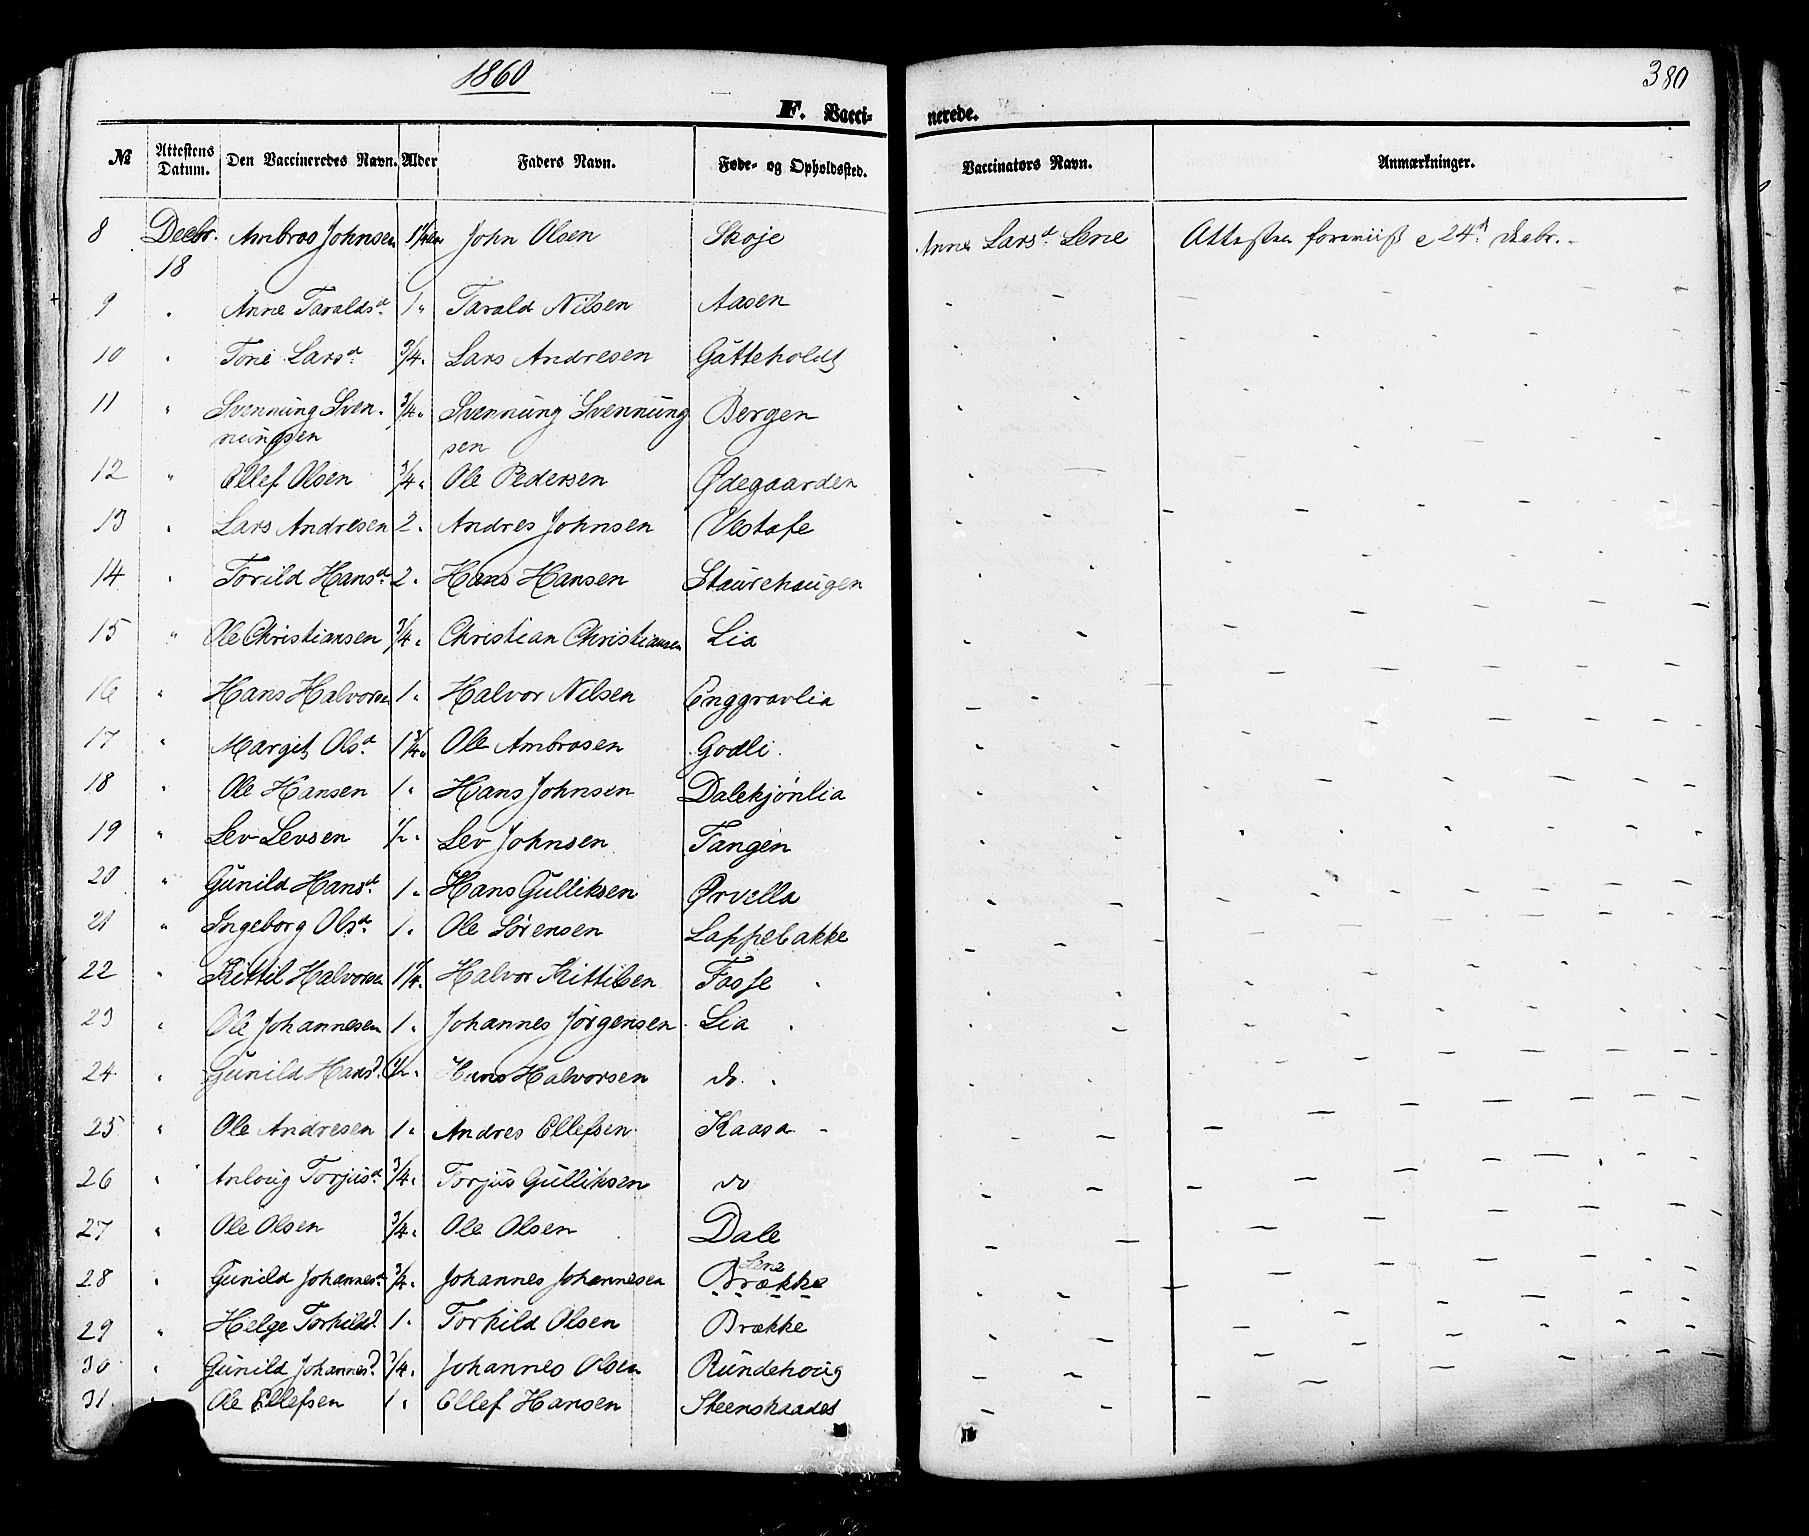 1860
380
F. Vacci-
nerede.
№ Attestens Datum. Den Vaccineredes Navn. Alder Faders Navn. Føde- og Opholdssted. Vaccinators Navn. Anmærkninger.
8 Decbr. 18 Ambros Johnsen 1 1/4 John Olsen Skoje Anne Larsd. Lene 24d. Decbr.
9 " Anne Taraldsd. 1 " Tarald Nilsen Aasen
10 " Tone Larsd. 3/4 " Lars Andresen Gátteholdt
11 " Svennung Sven- 3/4 " Svennung Svennung Bergen
nungsen sen
12 " Ellef Olsen 3/4 " Ole Pedersen Ødegaarden
13 " Lars Andresen 2 " Andres Johnsen Vestafe
14 " Torild Hansd. 2 " Hans Hansen Staurehaugen
15 " Ole Christiansen 3/4 " Christian Christiansen Lia
16 " Hans Halvorsen 1 " Halvor Nilsen Enggravlia
17 " Margit Olsd. 1 3/4 " Ole Ambrosen Godli
18 " Ole Hansen 1 " Hans Johnsen Dalekjønlia
19 " Lev Levsen 1/2 " Lev Johnsen Tangen
20 " Gunild Hansd. 1 " Hans Gulliksen Ørvella
21 " Ingeborg Olsd. 1 " Ole Sørensen Lappebakke
22 " Kittil Halvorsen 1 1/4 " Halvor Kittilsen Fosse
23 " Ole Johannesen 1 " Johannes Jørgensen Lia
24 " Gunild Hansd. 1/2 " Hans Halvorsen do
25 " Ole Andresen 1 " Andres Ellefsen Kaasa
26 " Anlaug Torjusd. 3/4 " Torjus Gulliksen do
27 " Ole Olsen 3/4 " Ole Olsen Dale
28 " Gunild Johannesd. 3/4 " Johannes Johannesen Brække Lene
29 " Helge Torkildsd. 1 " Torkild Olsen Brække
30 " Gunild Johannesd. 3/4 " Johannes Olsen Rundehoug
31. " Ole Ellefsen 1 " Ellef Hansen Steenskaades